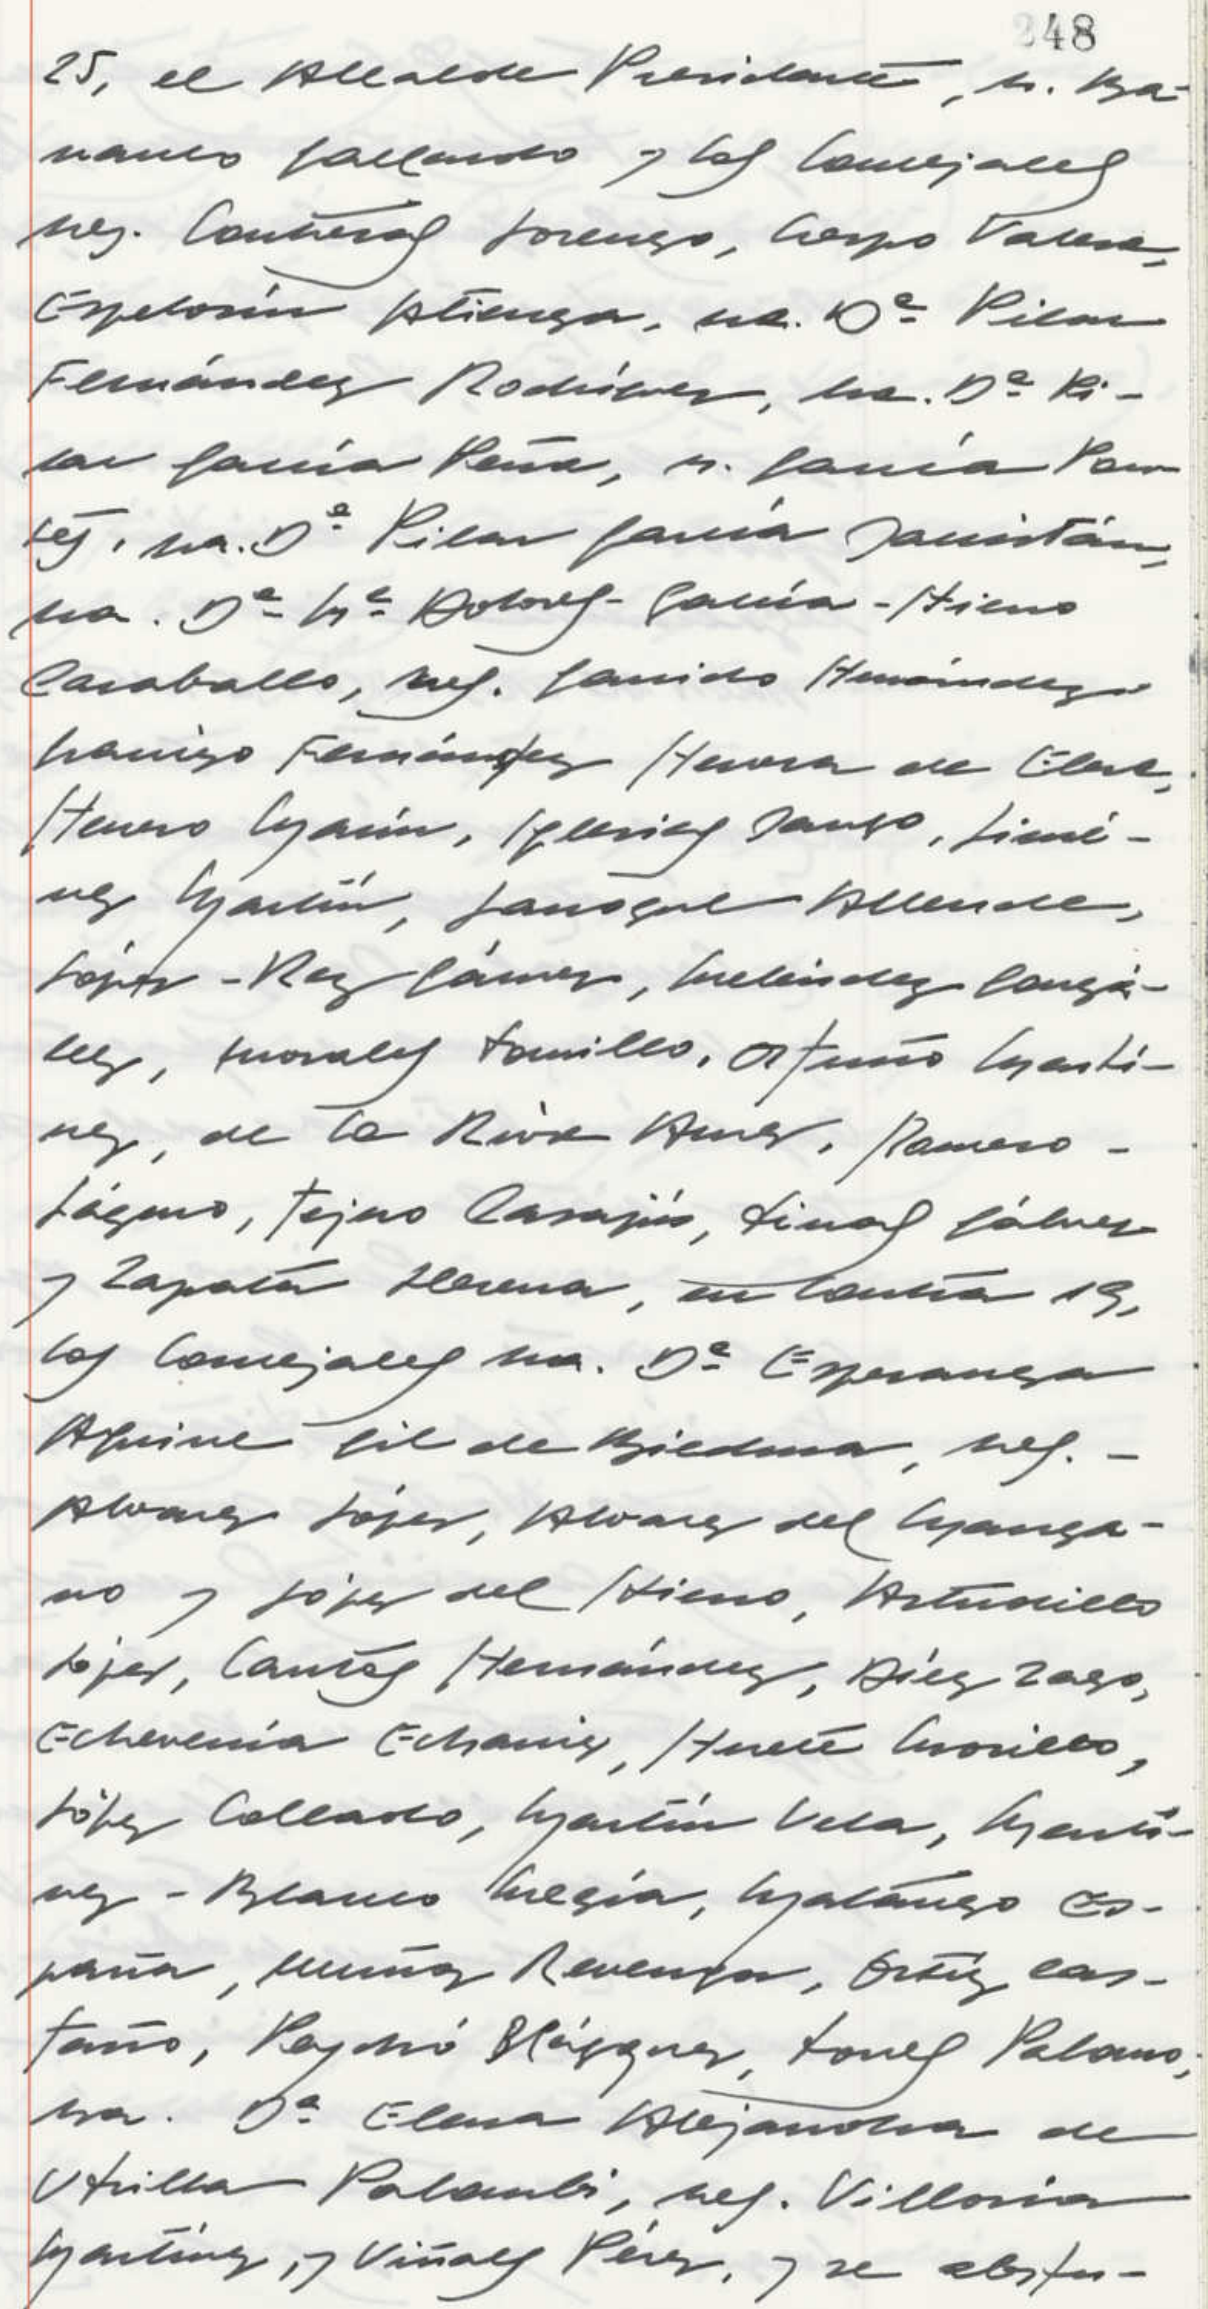 248
25, el Alcalde Presidente, sr. Ba-
rranco Gallardo y los Concejales
sres. Contreras Lorenzo, Crespo Valera,
Espelosín Atienza, sra. Dª Pilar
Fernández Rodríguez, sra. Dª Pi-
lar García Peña, sr. García Pon-
tes, sra. Dª Pilar García Sanistán,
sra. Dª Mª Dolores García-Hierro
Caraballo, sres. Garrido Hernández
Fernández Herrera de Elera,
Herrero Marín, Iglesias Jimé-
nez Martín, Larroque Allende,
López-Rey Gómez, Meléndez Gonzá-
lez, Morales Tomillo, Ortuño Martí-
nez, de la Riva Amez, Romero
Lázaro, Tejero Casajús, Tinas Gálvez
y Zapata Llerena, en contra 19,
los Concejales sra. Dª Esperanza
Aguirre Gil de Biedma, sres. -
Alvarez López, Alvarez del Manza-
no y López del Hierro, Astudillo
López, Cantos Hernández, Díez Zazo,
Echeverría Echaniz, Huete Morillo,
López Collado, Martín Vela, Martí-
nez-Blanco Megía, Matanzo Es-
paña, Muñoz Revenga, Ortiz Cas-
taño, Peydró Blázquez, Torres Palomo,
sra. Dª Elena Alejandra de
Utrilla Palombi, sres. Villoria
Martínez, y Viñals Pérez, y se abstu-